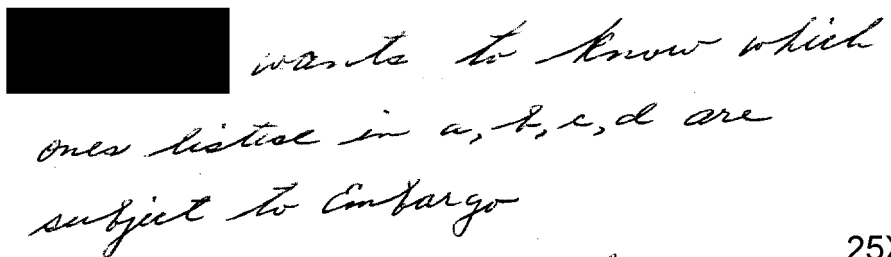 wants to know which
ones listed in a, b, c, d are
subject to Embargo
25X